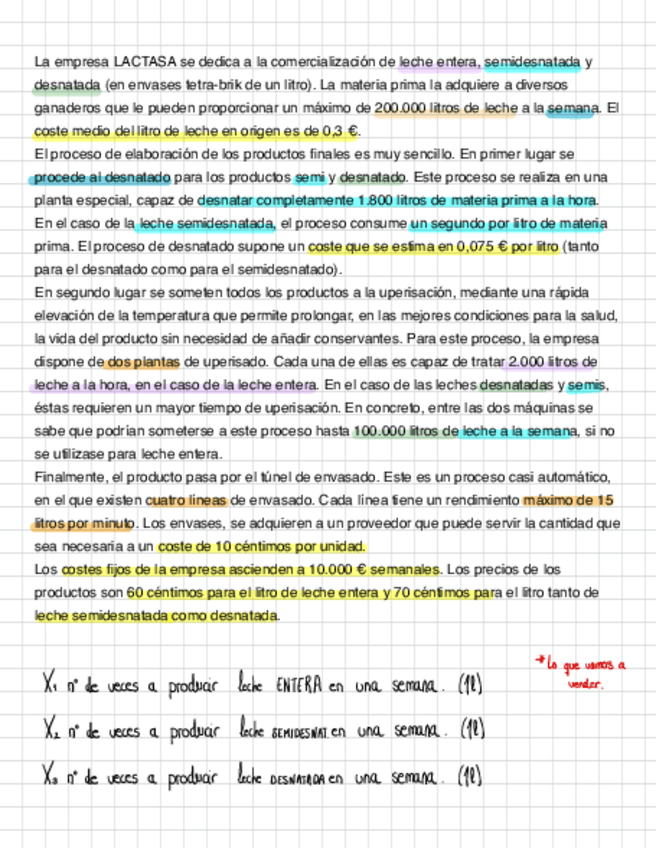 La empresa LACTASA se dedica a la comercialización de leche entera, semidesnatada y
desnatada (en envases tetra-brik de un litro). La materia prima la adquiere a diversos
ganaderos que le pueden proporcionar un máximo de 200.000 litros de leche a la semana. El
coste medio del litro de leche en origen es de 0,3 €.
El proceso de elaboración de los productos finales es muy sencillo. En primer lugar se
procede al desnatado para los productos semi y desnatado. Este proceso se realiza en una
planta especial, capaz de desnatar completamente 1.800 litros de materia prima a la hora.
En el caso de la leche semidesnatada, el proceso consume un segundo por litro de materia
prima. El proceso de desnatado supone un coste que se estima en 0,075 € por litro (tanto
para el desnatado como para el semidesnatado).
En segundo lugar se someten todos los productos a la uperisación, mediante una rápida
elevación de la temperatura que permite prolongar, en las mejores condiciones para la salud,
la vida del producto sin necesidad de añadir conservantes. Para este proceso, la empresa
dispone de dos plantas de uperisado. Cada una de ellas es capaz de tratar 2.000 litros de
leche a la hora, en el caso de la leche entera. En el caso de las leches desnatadas y semis,
éstas requieren un mayor tiempo de uperisación. En concreto, entre las dos máquinas se
sabe que podrían someterse a este proceso hasta 100.000 litros de leche a la semana, si no
se utilizase para leche entera.
Finalmente, el producto pasa por el túnel de envasado. Este es un proceso casi automático,
en el que existen cuatro líneas de envasado. Cada línea tiene un rendimiento máximo de 15
litros por minuto. Los envases, se adquieren a un proveedor que puede servir la cantidad que
sea necesaria a un coste de 10 céntimos por unidad.
Los costes fijos de la empresa ascienden a 10.000 € semanales. Los precios de los
productos son 60 céntimos para el litro de leche entera y 70 céntimos para el litro tanto de
leche semidesnatada como desnatada.
* Lo que vamos a
vender.
X₁ nº de veces a producir leche ENTERA en una semana. (1l)
X₂ nº de veces a producir leche SEMIDESNAT. en una semana. (1l)
X₃ nº de veces a producir leche DESNATADA en una semana. (1l)